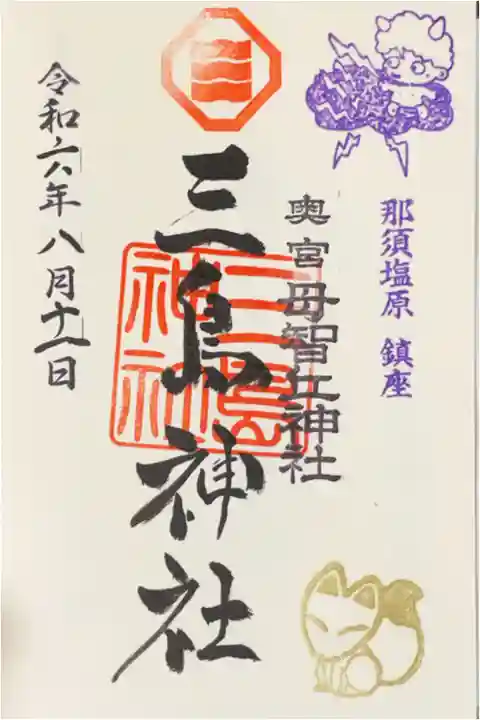 那須塩原 鎮座
奥宮 母智丘神社
三島神社
三島
神社
令和六年八月十一日